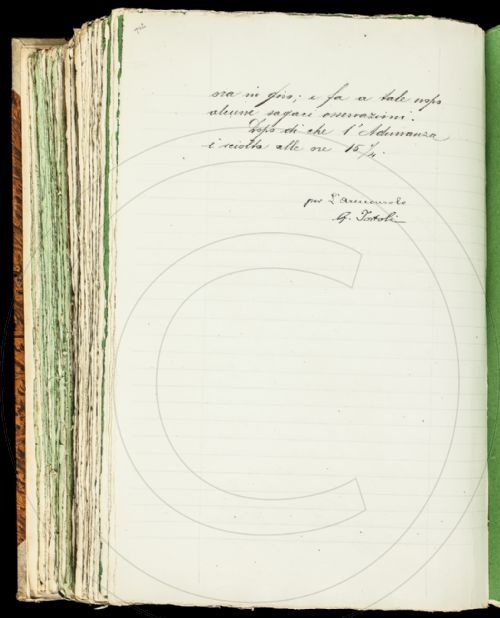 ora in giro; e fa a tale uopo
alcune sagaci osservazioni.
Dopo di che l'Adunanza
è sciolta alle ore 15 /4.
per L'
G. Tortoli